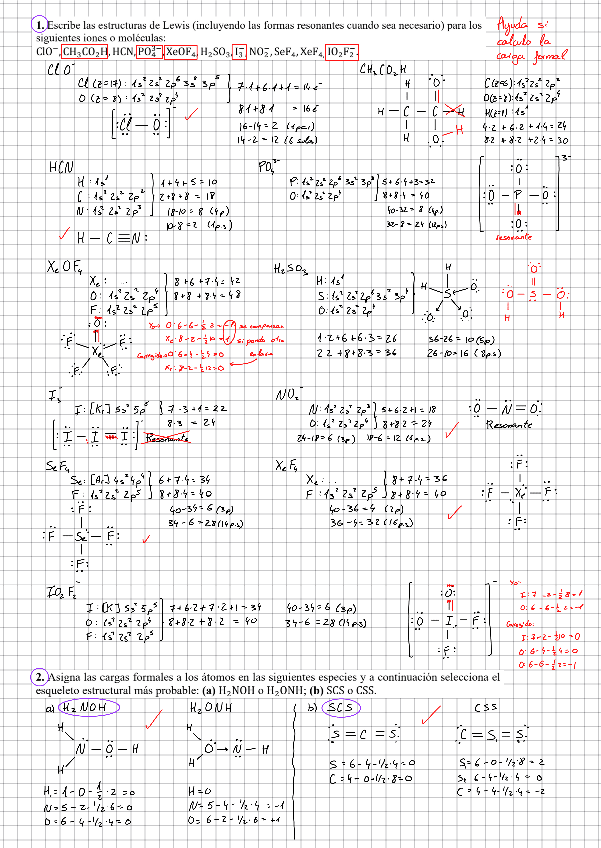 1. Escribe las estructuras de Lewis (incluyendo las formas resonantes cuando sea necesario) para los
siguientes iones o moléculas:
ClO⁻, CH₃CO₂H, HCN, PO₄³⁻, XeOF₄, H₂SO₃, I₃⁻, NO₂⁻, SeF₄, XeF₄, IO₂F₂⁻
Ayuda si
calculo la
carga formal
ClO⁻
Cl (Z=17): 1s² 2s² 2p⁶ 3s² 3p⁵
O (Z=8): 1s² 2s² 2p⁴
7·1+6·1+1=14 e⁻
8·1+8·1 = 16 e⁻
16-14=2 (1 par)
14-2=12 (6 solos)
[Cl-O]⁻
CH₃CO₂H
C(z=6):1s² 2s² 2p²
O(z=8):1s² 2s² 2p⁴
H(z=1):1s¹
4·2+6·2+1·4=24
8·2+8·2+2·4=30
HCN
H: 1s¹
C: 1s² 2s² 2p²
N: 1s² 2s² 2p³
1+4+5=10
2+8+8=18
18-10=8 (4p)
10-8=2 (1p.s)
H-C≡N:
PO₄³⁻
P: 1s² 2s² 2p⁶ 3s² 3p³
O: 1s² 2s² 2p⁴
5+6·4+3=32
8+8·4=40
40-32=8 (4p)
32-8=24 (12p.s)
3-
resonante
XeOF₄
Xe: ...
O: 1s² 2s² 2p⁴
F: 1s² 2s² 2p⁵
8+6+7·4=42
8+8+8·4=48
H₂SO₃
H: 1s¹
S: 1s² 2s² 2p⁶ 3s² 3p⁴
O: 1s² 2s² 2p⁴
1·2+6+6·3=26
2·2+8+8·3=36
36-26=10 (5p)
26-10=16 (8p.s)
I₃⁻
I: [Kr] 5s² 5p⁵
7·3+1=22
8·3=24
[I-I=I]⁻
Resonante
NO₂⁻
N: 1s² 2s² 2p³
O: 1s² 2s² 2p⁴
5+6·2+1=18
8+8·2=24
24-18=6 (3p) 18-6=12 (6p.s)
:O-N=O:
Resonante
SeF₄
Se: [Ar] 4s² 4p⁴
F: 1s² 2s² 2p⁵
6+7·4=34
8+8·4=40
40-34=6 (3p)
34-6=28 (14p.s)
XeF₄
Xe: ...
F: 1s² 2s² 2p⁵
8+7·4=36
8+8·4=40
40-36=4 (2p)
36-4=32 (16p.s)
IO₂F₂⁻
I: [K] 5s² 5p⁵
O: 1s² 2s² 2p⁴
F: 1s² 2s² 2p⁵
7+6·2+7·2+1=34
8+8·2+8·2=40
40-34=6 (3p)
34-6=28 (14p.s)
Corregido:
O: 6-4-½4=0
O: 6-6-½2=-1
2. Asigna las cargas formales a los átomos en las siguientes especies y a continuación selecciona el
esqueleto estructural más probable: (a) H₂NOH o H₂ONH; (b) SCS o CSS.
a) H₂NOH H₂ONH b) SCS CSS
H
N-O-H
H
H
O→N-H
H
S=C=S
C=S=S
H=1-0-½·2=0
N=5-2-½·6=0
O=6-4-½·4=0
H=0
N=5-4-½·4=-1
O=6-2-½·6=+1
S=6-4-½·4=0
C=4-0-½·8=0
S₁=6-0-½·8=2
S₂=6-4-½·4=0
C=4-4-½·4=-2